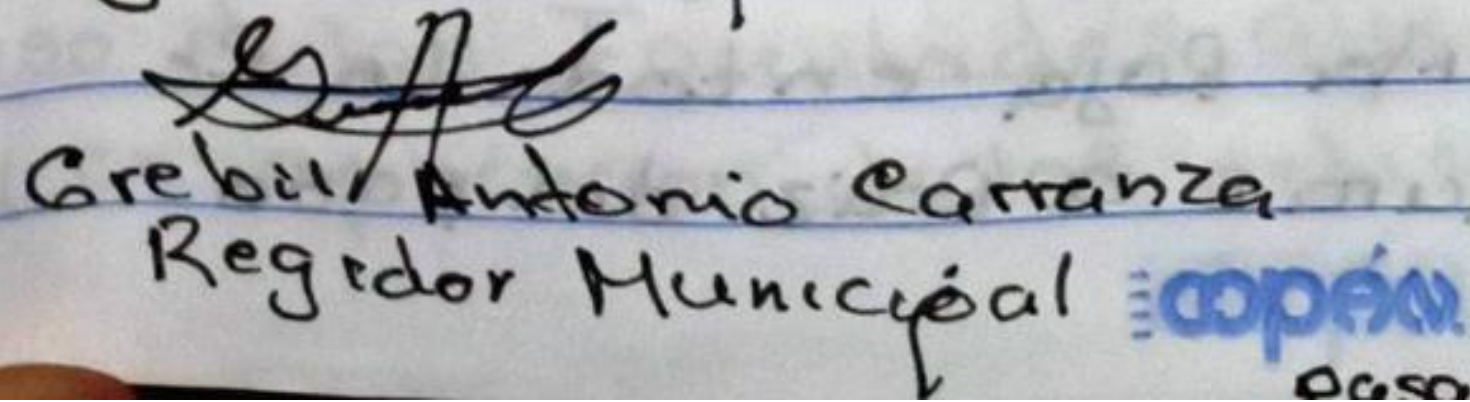 Grebil Antonio Carranza
Regidor Municipal
copán